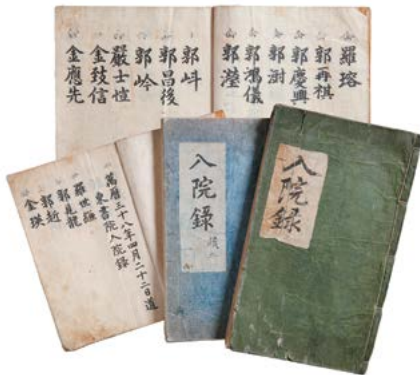 羅瑢
郭再祺
郭慶興
郭澍
郭鴻儀
郭瀅
郭
郭昌後
郭岭
嚴士
金致信
金應先
萬曆三十八年四月二十二日道
東書院入院錄
羅世
郭見龍
郭
金瑛
入院錄
入院錄